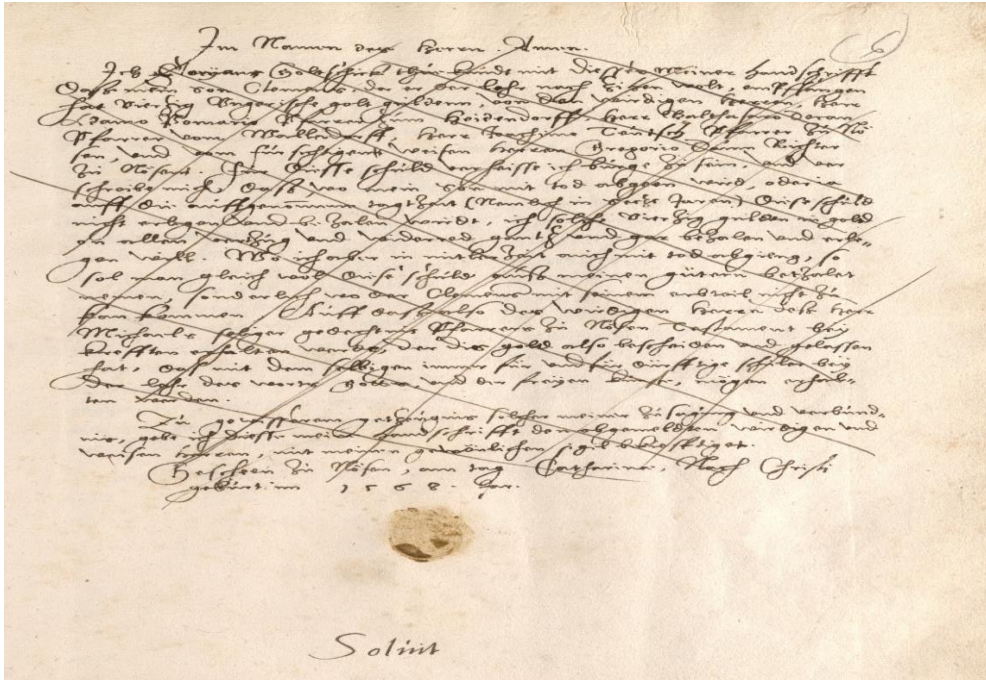 Im Namen des Herren. Amen.
Ich Goltschmidt thue kundt mit dieser meiner handschrifft
das mein son Clemens, der er der lehr nach ziehen wolt, empfangen
hat vierzig Ungerische golt gulden, von den wirdigen Herren, Herr
Adamo Pomario Pfarren zum Heidendorff, Herr Balthasaro
Pfarren vom Wallendorff, Herr Joachimo Teutsch Pfarrer zu
sen, und vom weisen Herren Gregorio Richter
zu Nösen. Für diesse schuld verheisse ich bürge zu sein, und ver
schreibe mich, das wo mein son mit tod abgeen wird, oder
auff die tagzeit (Nemlich in Jaren) diese schuld
nicht erlegen und bezalen wirdt, ich solche vierzig gulden
on allen verzug und widerred gantz und gar bezalen und erle-
gen will. Wo ich aber in mitler zeit auch mit tod abgieng, so
sol man gleich wol diese schuld auss meinen gütern bezalet
nemen, sonderlich wo der Clemens mit seinem erbteil nicht zu
kan kommen. Auff das also des wirdigen Herren
Michaelis seliger gedechtnis Pfarrers zu Nösen Testament bey
krefften erhalten werde, der dis geld also bescheiden und gelassen
hat, das mit dem selbigen immer für und für dürfftige schüler bey
der lehr des worts Gottes, und der freien künste, mögen erhal-
ten werden.
Zu getzeugnis solcher meiner zusagung und verbünd-
nis, gebe ich diesse meine handschrifft den obgemeldten wirdigen und
weisen Herren, mit meinem gewönlichen sigil bekrefftiget.
Gescheen zu Nösen, am tag Catharinae, Nach Christi
geburt im 1568. Jar.
Solvit